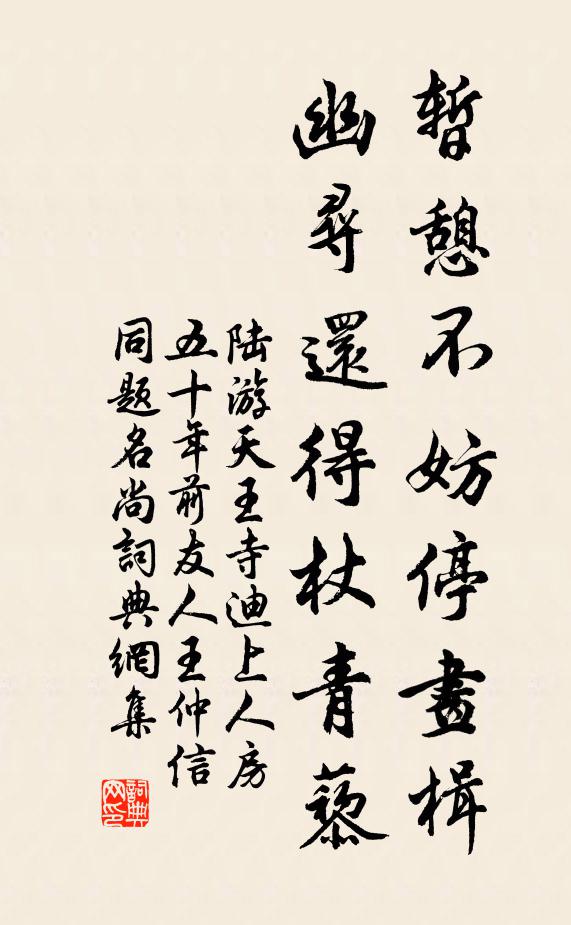 暫憩不妨停畫楫
幽尋還得杖青藜
陆游天王寺迪上人房
五十年前友人王仲信
同题名尚詞典網集
詞典网印